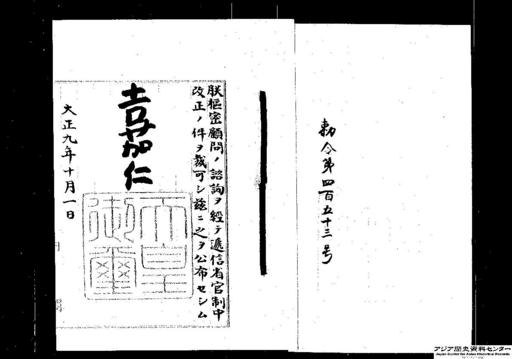 勅令第四百五十三号
朕枢密顧問ノ諮詢ヲ経テ逓信省官制中
改正ノ件ヲ裁可シ茲ニ之ヲ公布セシム
嘉仁
天皇
御璽
大正九年十月一日
アジア歴史資料センター
Japan Center for Asian Historical Records